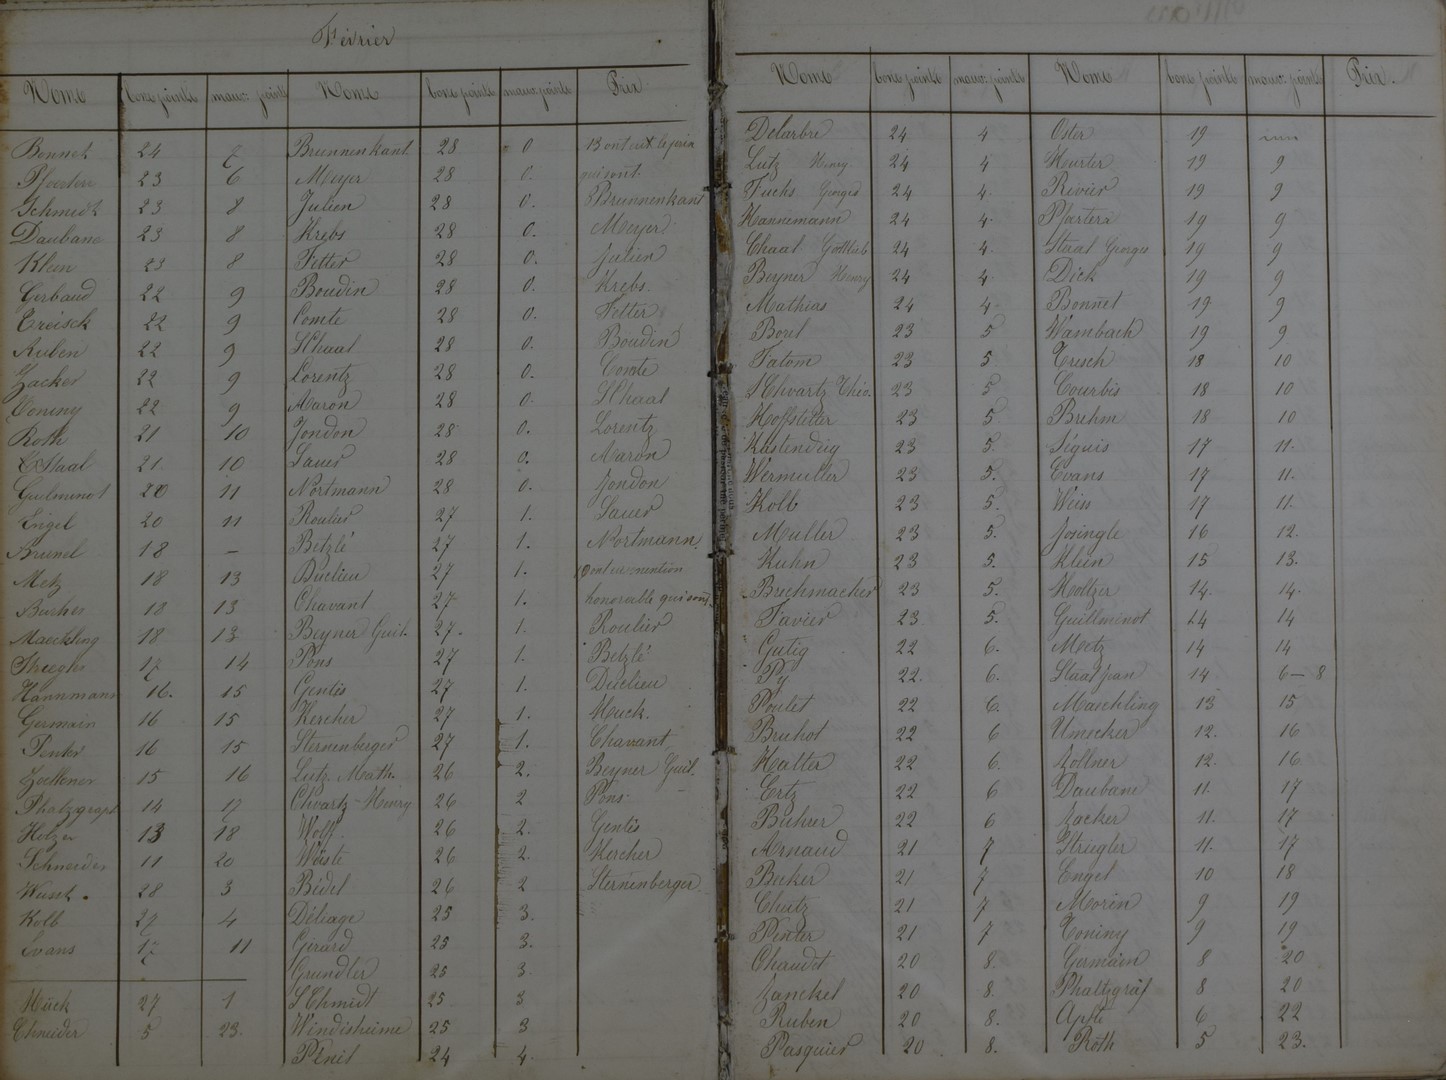 Février
Noms bons points mauv. points Noms bons points mauv. points Prix
Bonnet 24 7
Pfoersten 23 6
Schmidt 23 8
Daubane 23 8
Klein 23 8
Gerbaud 22 9
Ereisck 22 9
Ruben 22 9
Zacker 22 9
Coniny 22 9
Roth 21 10
C Staal 21 10
Guilminot 20 11
Engel 20 11
Brunel 18 –
Metz 18 13
Burhes 18 13
Maechling 18 13
Striegler 17 14
Hannmann 16. 15
Germain 16 15
Penter 16 15
Zoellener 15 16
Phalzgraph 14 17
Holzer 13 18
Schneider 11 20
Wust. 28 3
Kolb 27 4
Evans 17 11
Hück 27 1
Chneider 5 23.
Brunnenkant 28 0
Meyer 28 0.
Julien 28 0.
Krebs 28 0.
Fetter 28 0.
Boudin 28 0.
Comte 28 0.
SChaal 28 0.
Lorentz 28 0.
Aaron 28 0.
Jondon 28 0.
Sauer 28 0.
Nortmann 28 0.
Roulier 27 1.
Betzlé 27 1.
Duclieu 27 1.
Chavant 27 1.
Beyner Guil. 27. 1.
Pons 27 1.
Gentis 27 1.
Kercher 27 1.
Sternenberger 27 1.
Lutz Math. 26 2.
Chvartz Henry 26 2
Wolff 26 2.
Wéiste 26 2.
Bidel 26 2
Déliage 25 3.
Gerard 25 3.
Grundler 25 3.
SChmidt 25 3
Windisheime 25 3
Pénil 24 4.
13 ont eux le prix
qui sont.
Brunnenkant
Meyer
Julien
Krebs.
Fetter
Boudin
Comte
SChaal
Lorentz
Aaron
Jondon
Sauer
Nortmann.
10 ont eu mention
honorable qui sont.
Roulier
Betzlé
Duclieu
Huck.
Chavant
Beyner Guil.
Pons
Gentis
Kercher
Sternenberger
Noms bons points mauv. points Noms bons points mauv. points Prix.
Delarbre 24 4
Lutz Henry 24 4
Fuchs Georges 24 4.
Hannemann 24 4
Chaal Gottlieb 24 4.
Beyner Henry 24 4
Mathias 24 4
Borel 23 5
Fatom 23 5
SChvartz Théo. 23 5
Hoffstetter 23 5.
Kustendieg 23 5.
Wermuller 23 5.
Kolb 23 5.
Muller 23 5.
Kuhn 23 5.
Buchmacher 23 5.
Favier 23 5.
Gutig 22 6.
Py 22. 6.
Poulet 22 6.
Bruhot 22 6
Halter 22 6.
Ertz 22 6
Buheer 22 6
Arnaud 21 7
Becker 21 7
Chutz 21 7
Penter 21 7
Chaudet 20 8.
Janckel 20 8.
Ruben 20 8.
Pasquier 20 8.
Oster 19
Hurter 19 9
Rivier 19 9
Pfartera 19 9
Staal Georges 19 9
Dick 19 9
Bonnet 19 9
Wambach 19 9
Eresch 18 10
Courbis 18 10
Brehm 18 10
Séguis 17 11.
Evans 17 11.
Weiss 17 11.
Josingle 16 12.
Klein 15 13.
Holtzer 14. 14.
Guillminot 14 14
Metz 14 14
Staal Jean 14. 6–8
Maechling 13 15
Umecker 12. 16
Zollner 12. 16
Daubane 11. 17
Zacker 11. 17
Striegler 11. 17
Engel 10 18
Morin 9 19
Coniny 9 19
Germain 8 20
Phaltzgraf 8 20
Apfté 6 22
Roth 5 23.